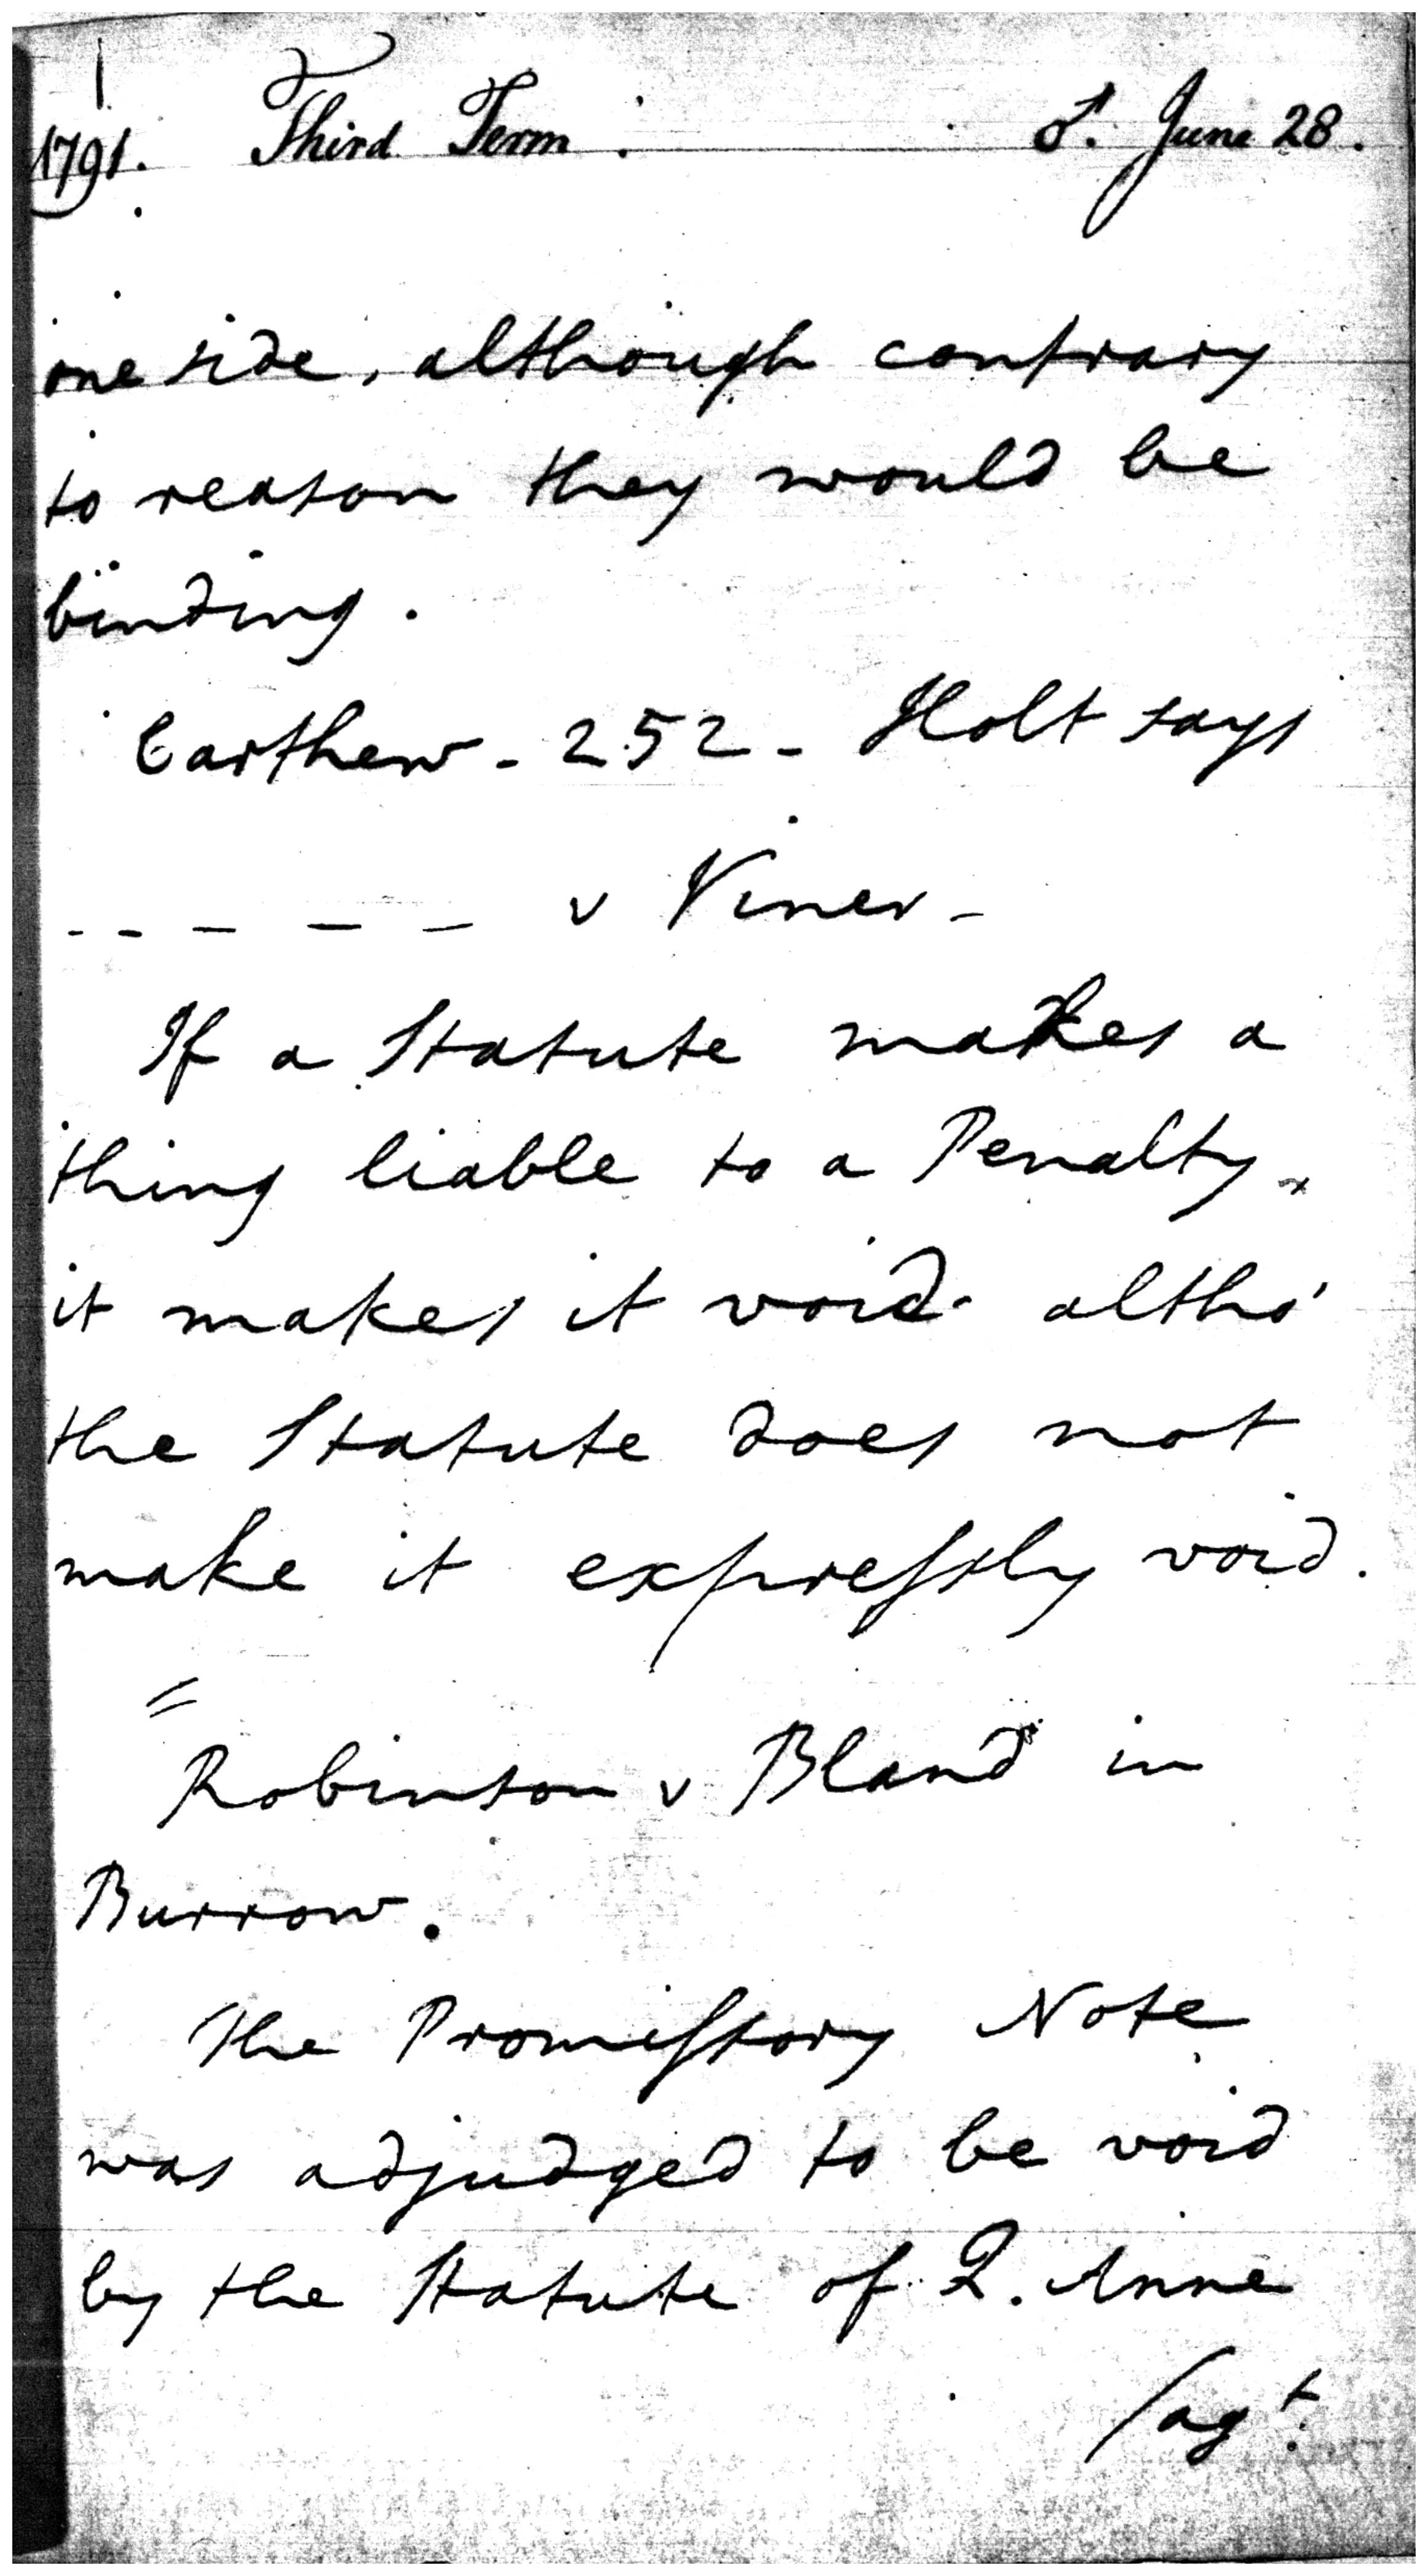 1791. Third Term. ♂. June 28.
one side, although contrary
to reason they would be
binding.
Carthew - 252 - Holt says
- - - - - v Viner -
If a Statute makes a
thing liable to a Penalty,
it makes it void altho'
the Statute does not
make it expressly void.
=
Robinson v Bland in
Burrow.
The Promissory Note
was adjudged to be void
by the Statute of Q. Anne
/agt.